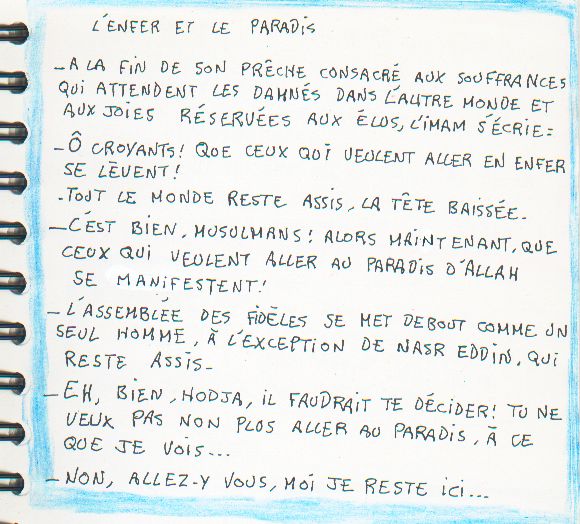 L'ENFER ET LE PARADIS
- A LA FIN DE SON PRÊCHE CONSACRÉ AUX SOUFFRANCES
QUI ATTENDENT LES DAMNÉS DANS L'AUTRE MONDE ET
AUX JOIES RÉSERVÉES AUX ÉLUS, L'IMAM S'ÉCRIE:
- Ô CROYANTS! QUE CEUX QUI VEULENT ALLER EN ENFER
SE LÈVENT!
- TOUT LE MONDE RESTE ASSIS, LA TÊTE BAISSÉE.
- C'EST BIEN, MUSULMANS! ALORS MAINTENANT, QUE
CEUX QUI VEULENT ALLER AU PARADIS D'ALLAH
SE MANIFESTENT!
- L'ASSEMBLÉE DES FIDÈLES SE MET DEBOUT COMME UN
SEUL HOMME, À L'EXCEPTION DE NASR EDDIN, QUI
RESTE ASSIS.
- EH, BIEN, HODJA, IL FAUDRAIT TE DÉCIDER! TU NE
VEUX PAS NON PLUS ALLER AU PARADIS, À CE
QUE JE VOIS...
- NON, ALLEZ-Y VOUS, MOI JE RESTE ICI...